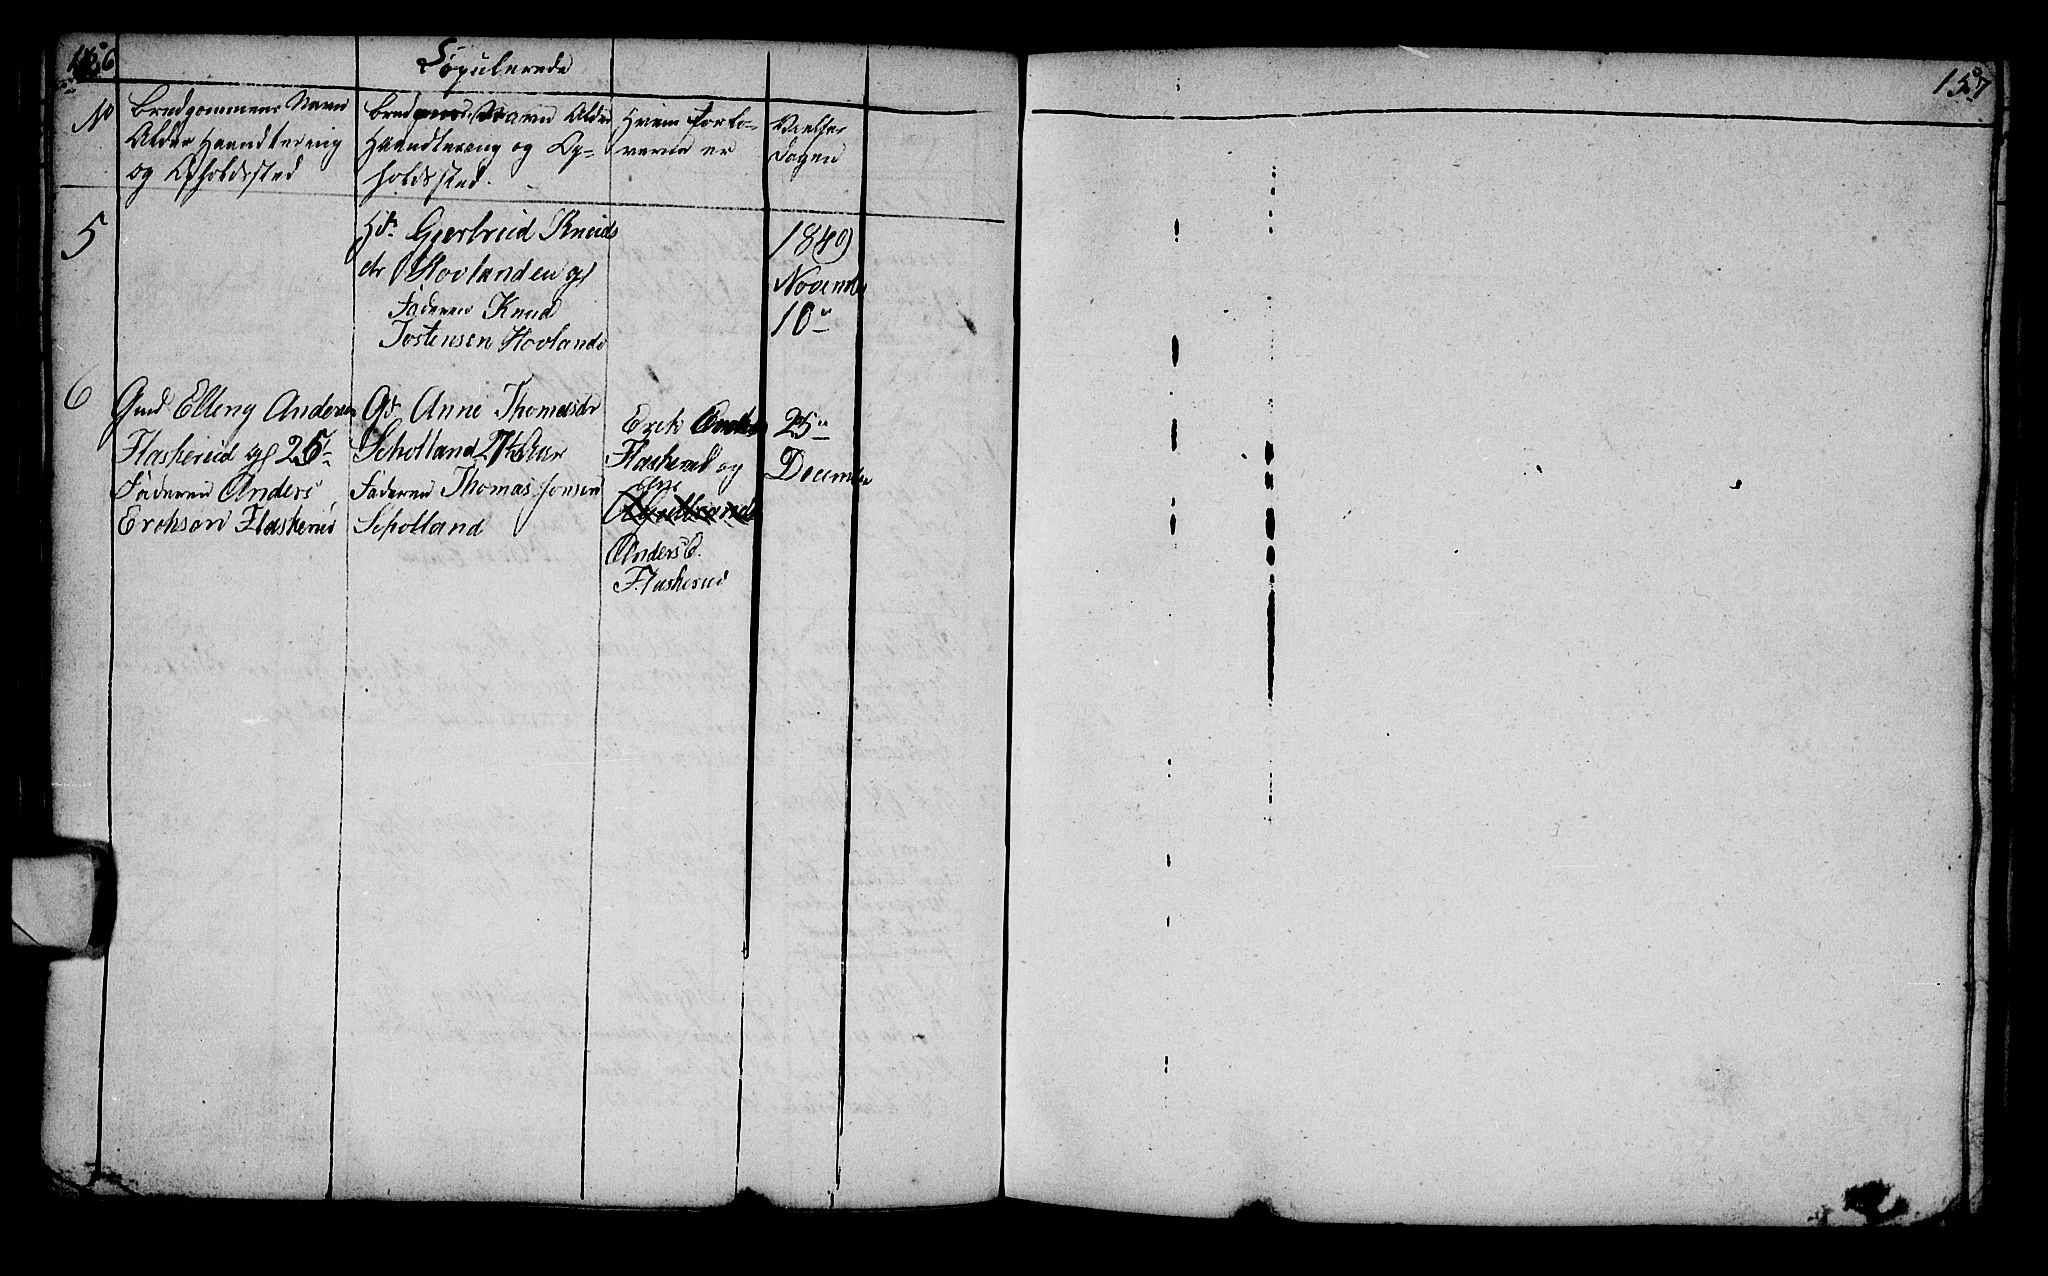 156
Copulerede
No
Brudgommens Navn
Alder Haandtering
og Opholdssted
Brudens Navn Alder
Haandtering og Op-
holdssted.
Hvem Forlo-
verne er
Vielses
Dagen
5
Gjertrud Knuds
dr Hovlanden gl
Faderen Knud
Tostensen Hovlande
1849
Novembr
10
6
Gud Elleng Andersen
Flaskerud gl 25
Faderen Anders
Erekson Flaskerud
Anne Thomasdr
Scholland Aar
Faderen Thomas Jonsen
Scholland
Erek
Flaskerud og
Anders E.
Flaskerud
25
December
157